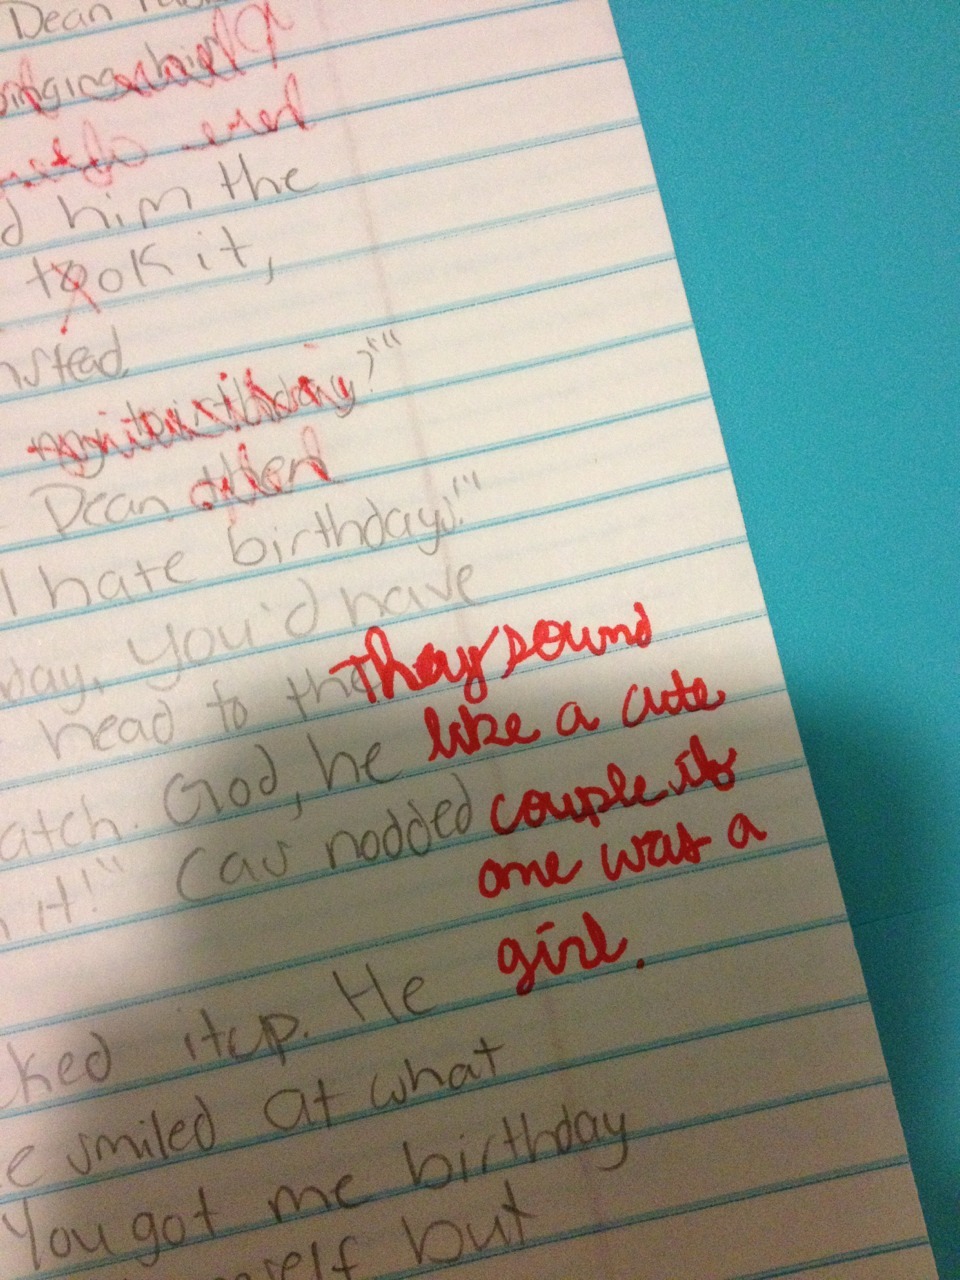 Dean
him the
took it,
nstead.
Dean
I hate birthdays!"
day, you'd have
head to the
They sound
like a cute
couple ib
one was a
girl.
atch. God, he
it!" Cas nodded
cked it up. He
e smiled at what
You got me birthday
but